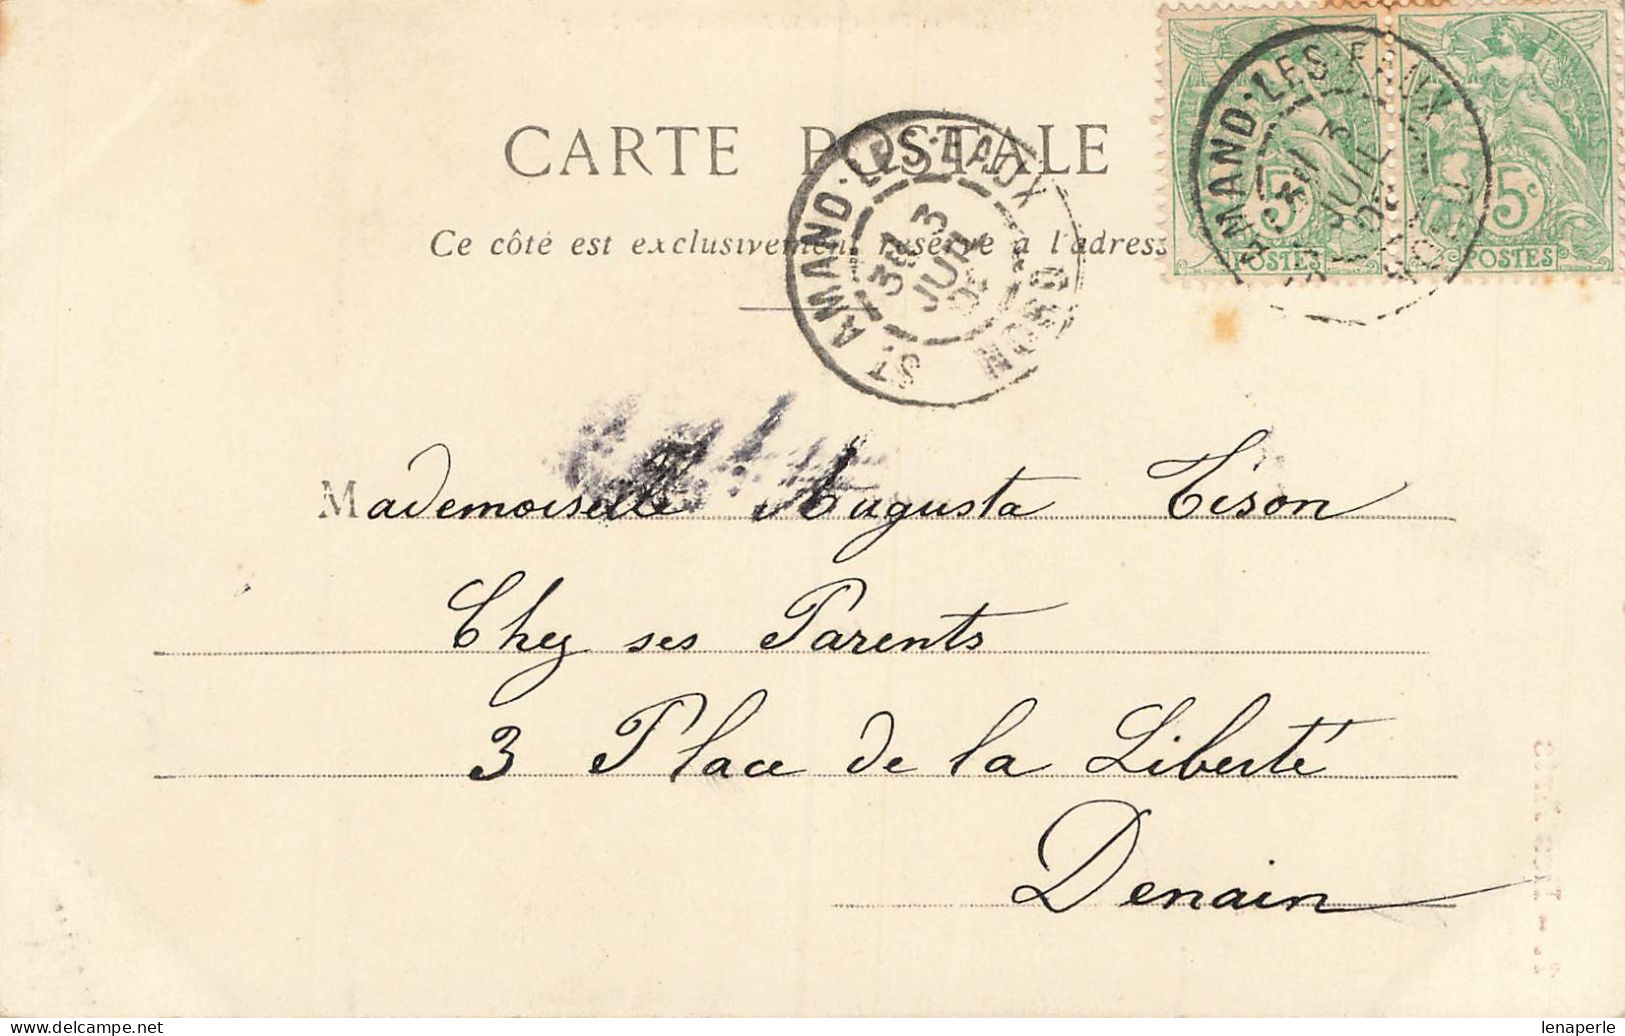 CARTE POSTALE
Ce côté est exclusivement réservé à l'adresse
ST. AMAND-LES-EAUX
NORD
3
JUIL
5c
POSTES
5c
POSTES
ST. AMAND-LES-EAUX
3
JUIL
Mademoiselle Augusta Tison
Chez ses Parents
3 Place de la Liberté
Denain
lenaperle